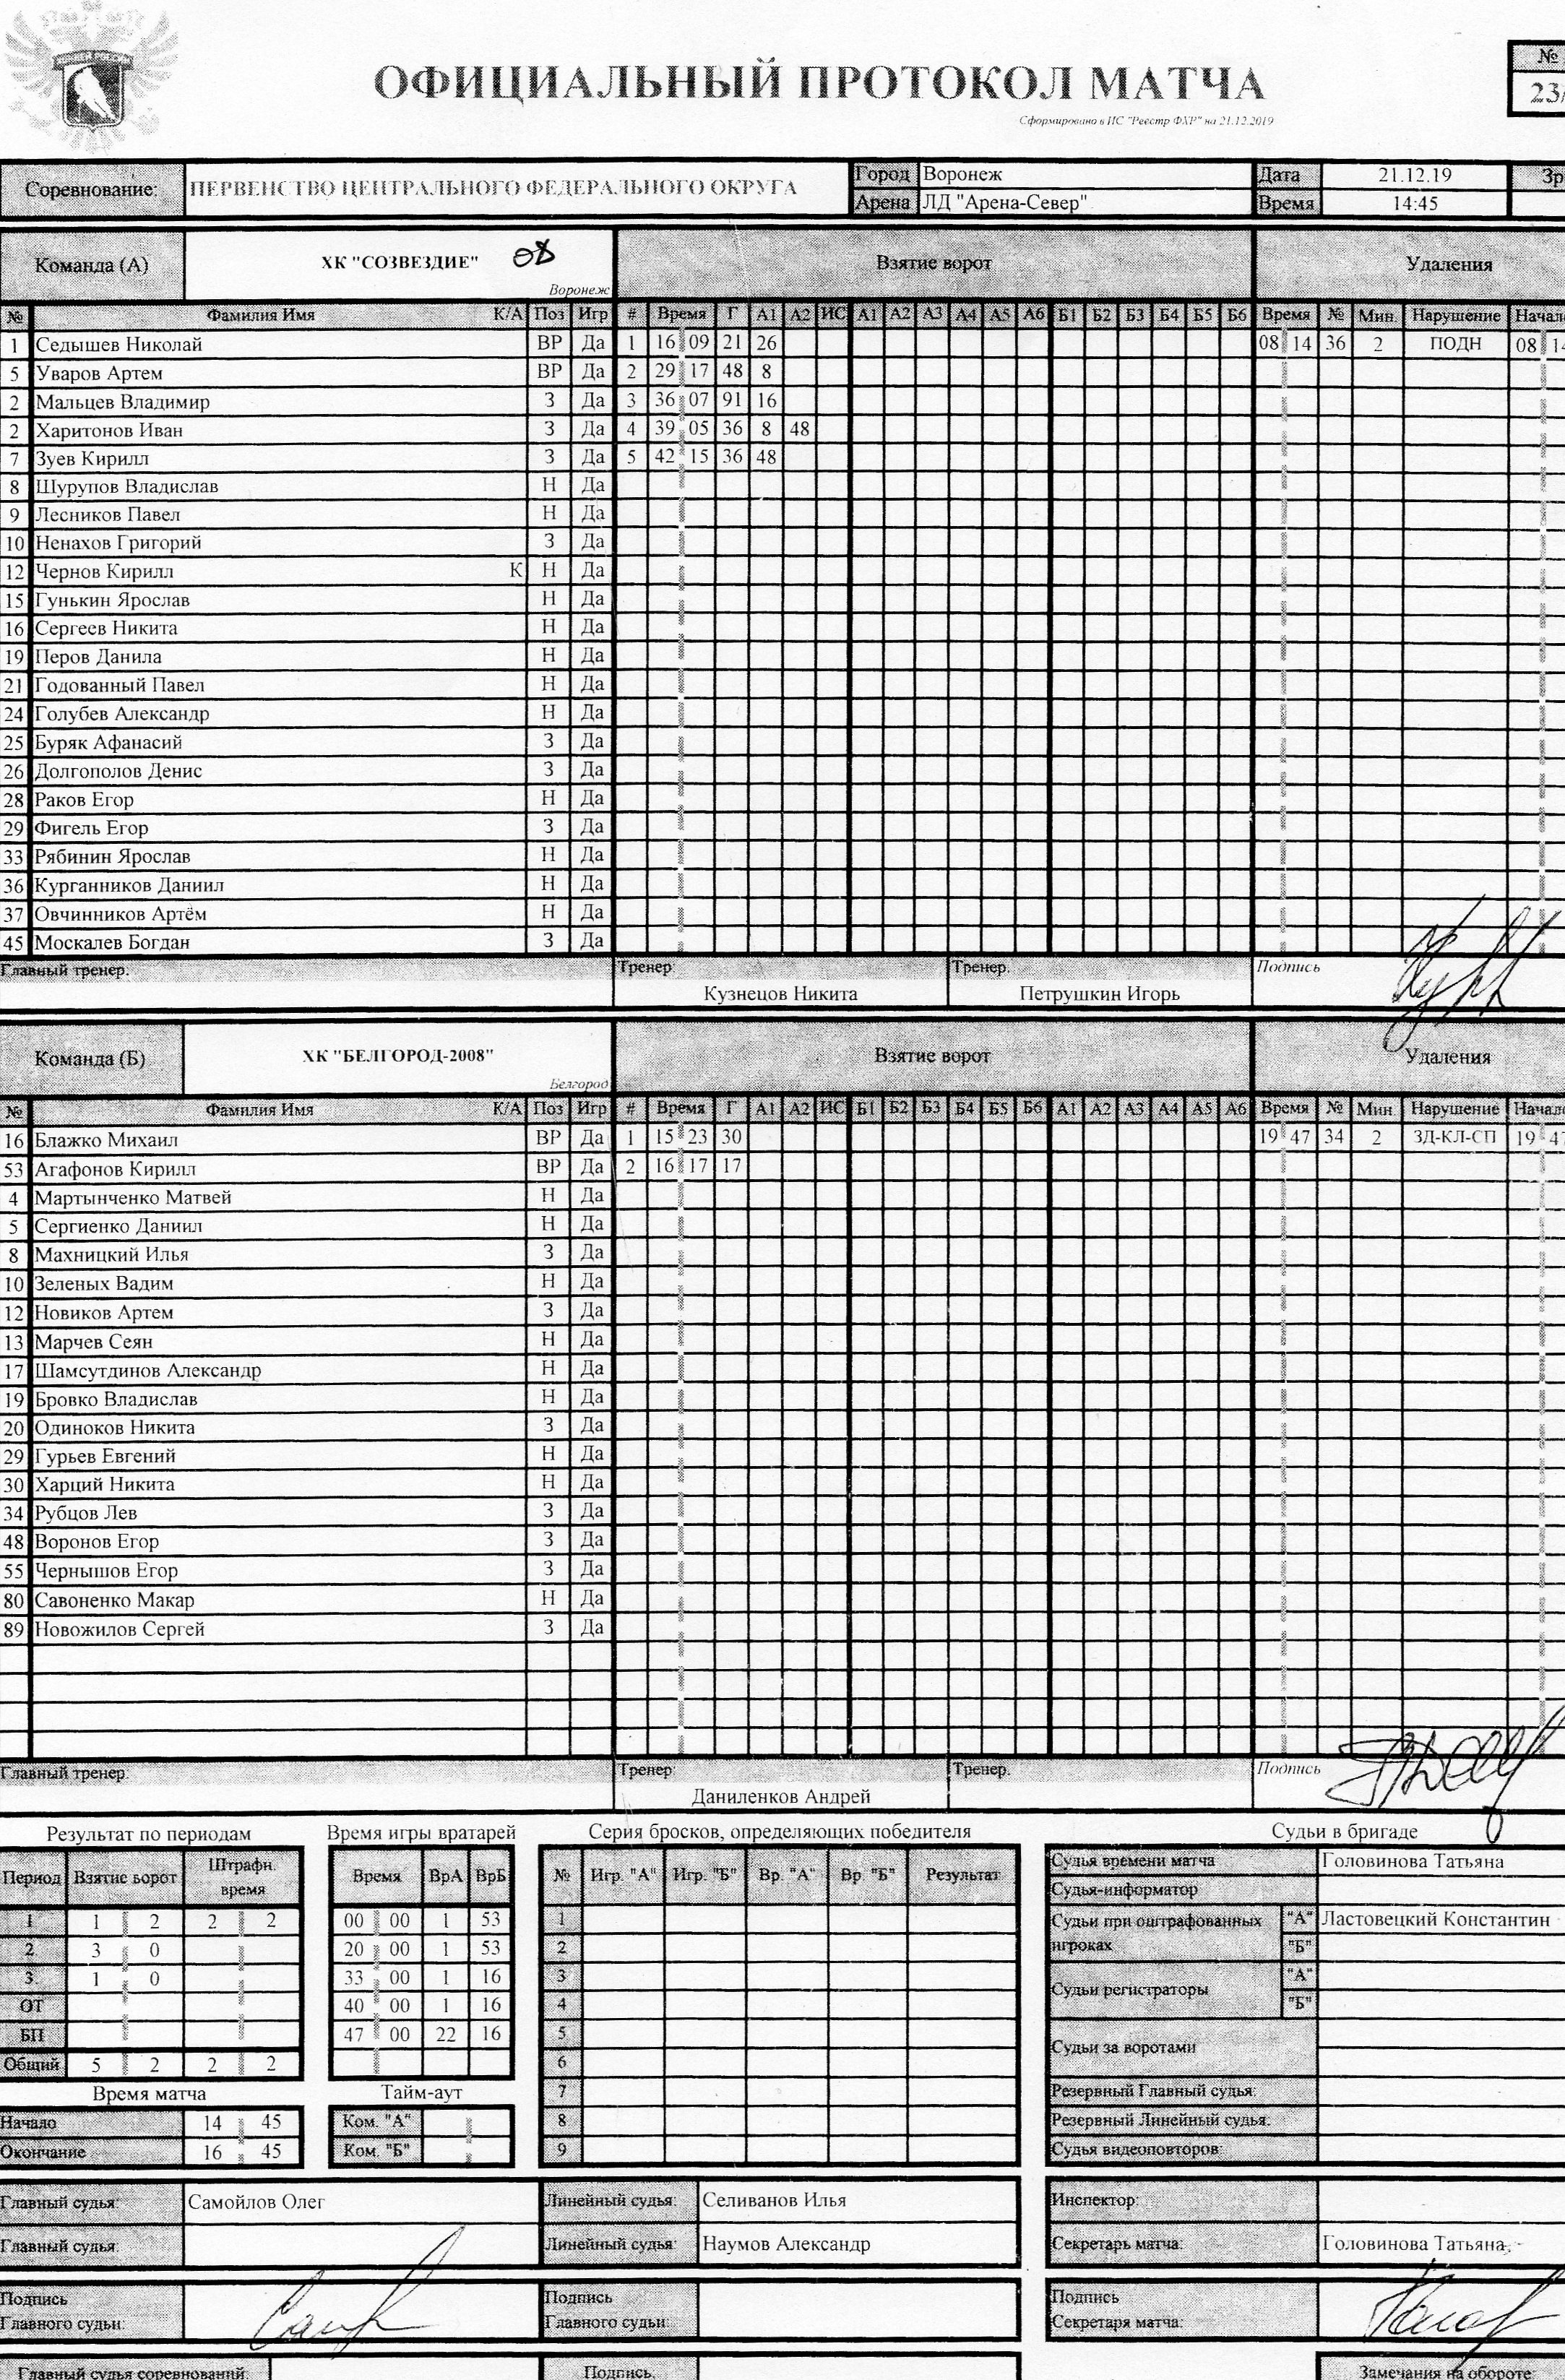 ОФИЦИАЛЬНЫЙ ПРОТОКОЛ МАТЧА
№
23/
Сформировано в ИС "Реестр ФХР" на 21.12.2019
Соревнование: ПЕРВЕНСТВО ЦЕНТРАЛЬНОГО ФЕДЕРАЛЬНОГО ОКРУГА Город Воронеж Дата 21.12.19 Зр
Арена ЛД "Арена-Север" Время 14:45
Команда (А) ХК "СОЗВЕЗДИЕ" 08 Воронеж Взятие ворот Удаления
№ Фамилия Имя К/А Поз Игр # Время Г А1 А2 ИС А1 А2 А3 А4 А5 А6 Б1 Б2 Б3 Б4 Б5 Б6 Время № Мин. Нарушение Начал
1 Седышев Николай ВР Да 1 16 09 21 26 08 14 36 2 ПОДН 08 14
5 Уваров Артем ВР Да 2 29 17 48 8
2 Мальцев Владимир З Да 3 36 07 91 16
2 Харитонов Иван З Да 4 39 05 36 8 48
7 Зуев Кирилл З Да 5 42 15 36 48
8 Шурупов Владислав Н Да
9 Лесников Павел Н Да
10 Ненахов Григорий З Да
12 Чернов Кирилл К Н Да
15 Гунькин Ярослав Н Да
16 Сергеев Никита Н Да
19 Перов Данила Н Да
21 Годованный Павел Н Да
24 Голубев Александр Н Да
25 Буряк Афанасий З Да
26 Долгополов Денис З Да
28 Раков Егор Н Да
29 Фигель Егор З Да
33 Рябинин Ярослав Н Да
36 Курганников Даниил Н Да
37 Овчинников Артём Н Да
45 Москалев Богдан З Да
Главный тренер: Тренер: Тренер. Подпись
Кузнецов Никита Петрушкин Игорь
Команда (Б) ХК "БЕЛГОРОД-2008" Белгород Взятие ворот Удаления
№ Фамилия Имя К/А Поз Игр # Время Г А1 А2 ИС Б1 Б2 Б3 Б4 Б5 Б6 А1 А2 А3 А4 А5 А6 Время № Мин Нарушение Начал
16 Блажко Михаил ВР Да 1 15 23 30 19 47 34 2 ЗД-КЛ-СП 19 47
53 Агафонов Кирилл ВР Да 2 16 17 17
4 Мартынченко Матвей Н Да
5 Сергиенко Даниил Н Да
8 Махницкий Илья З Да
10 Зеленых Вадим Н Да
12 Новиков Артем З Да
13 Марчев Сеян Н Да
17 Шамсутдинов Александр Н Да
19 Бровко Владислав Н Да
20 Одиноков Никита З Да
29 Гурьев Евгений Н Да
30 Харций Никита Н Да
34 Рубцов Лев З Да
48 Воронов Егор З Да
55 Чернышов Егор З Да
80 Савоненко Макар Н Да
89 Новожилов Сергей З Да
Главный тренер: Тренер: Тренер. Подпись
Даниленков Андрей
Результат по периодам
Период Взятие ворот Штрафн. время
1 1 2 2 2
2 3 0
3 1 0
ОТ
БП
Общий 5 2 2 2
Время матча
Начало 14 45
Окончание 16 45
Время игры вратарей
Время ВрА ВрБ
00 00 1 53
20 00 1 53
33 00 1 16
40 00 1 16
47 00 22 16
Тайм-аут
Ком. "А"
Ком. "Б"
Серия бросков, определяющих победителя
№ Игр. "А" Игр. "Б" Вр. "А" Вр. "Б" Результат
1
2
3
4
5
6
7
8
9
Судьи в бригаде
Судья времени матча Головинова Татьяна
Судья-информатор
Судьи при оштрафованных игроках "А" Ластовецкий Константин
"Б"
Судьи регистраторы "А"
"Б"
Судьи за воротами
Резервный Главный судья:
Резервный Линейный судья:
Судья видеоповторов:
Главный судья: Самойлов Олег Линейный судья: Селиванов Илья Инспектор:
Главный судья: Линейный судья: Наумов Александр Секретарь матча: Головинова Татьяна
Подпись Главного судьи: Подпись Главного судьи: Подпись Секретаря матча:
Главный судья соревнований: Подпись. Замечания на обороте: